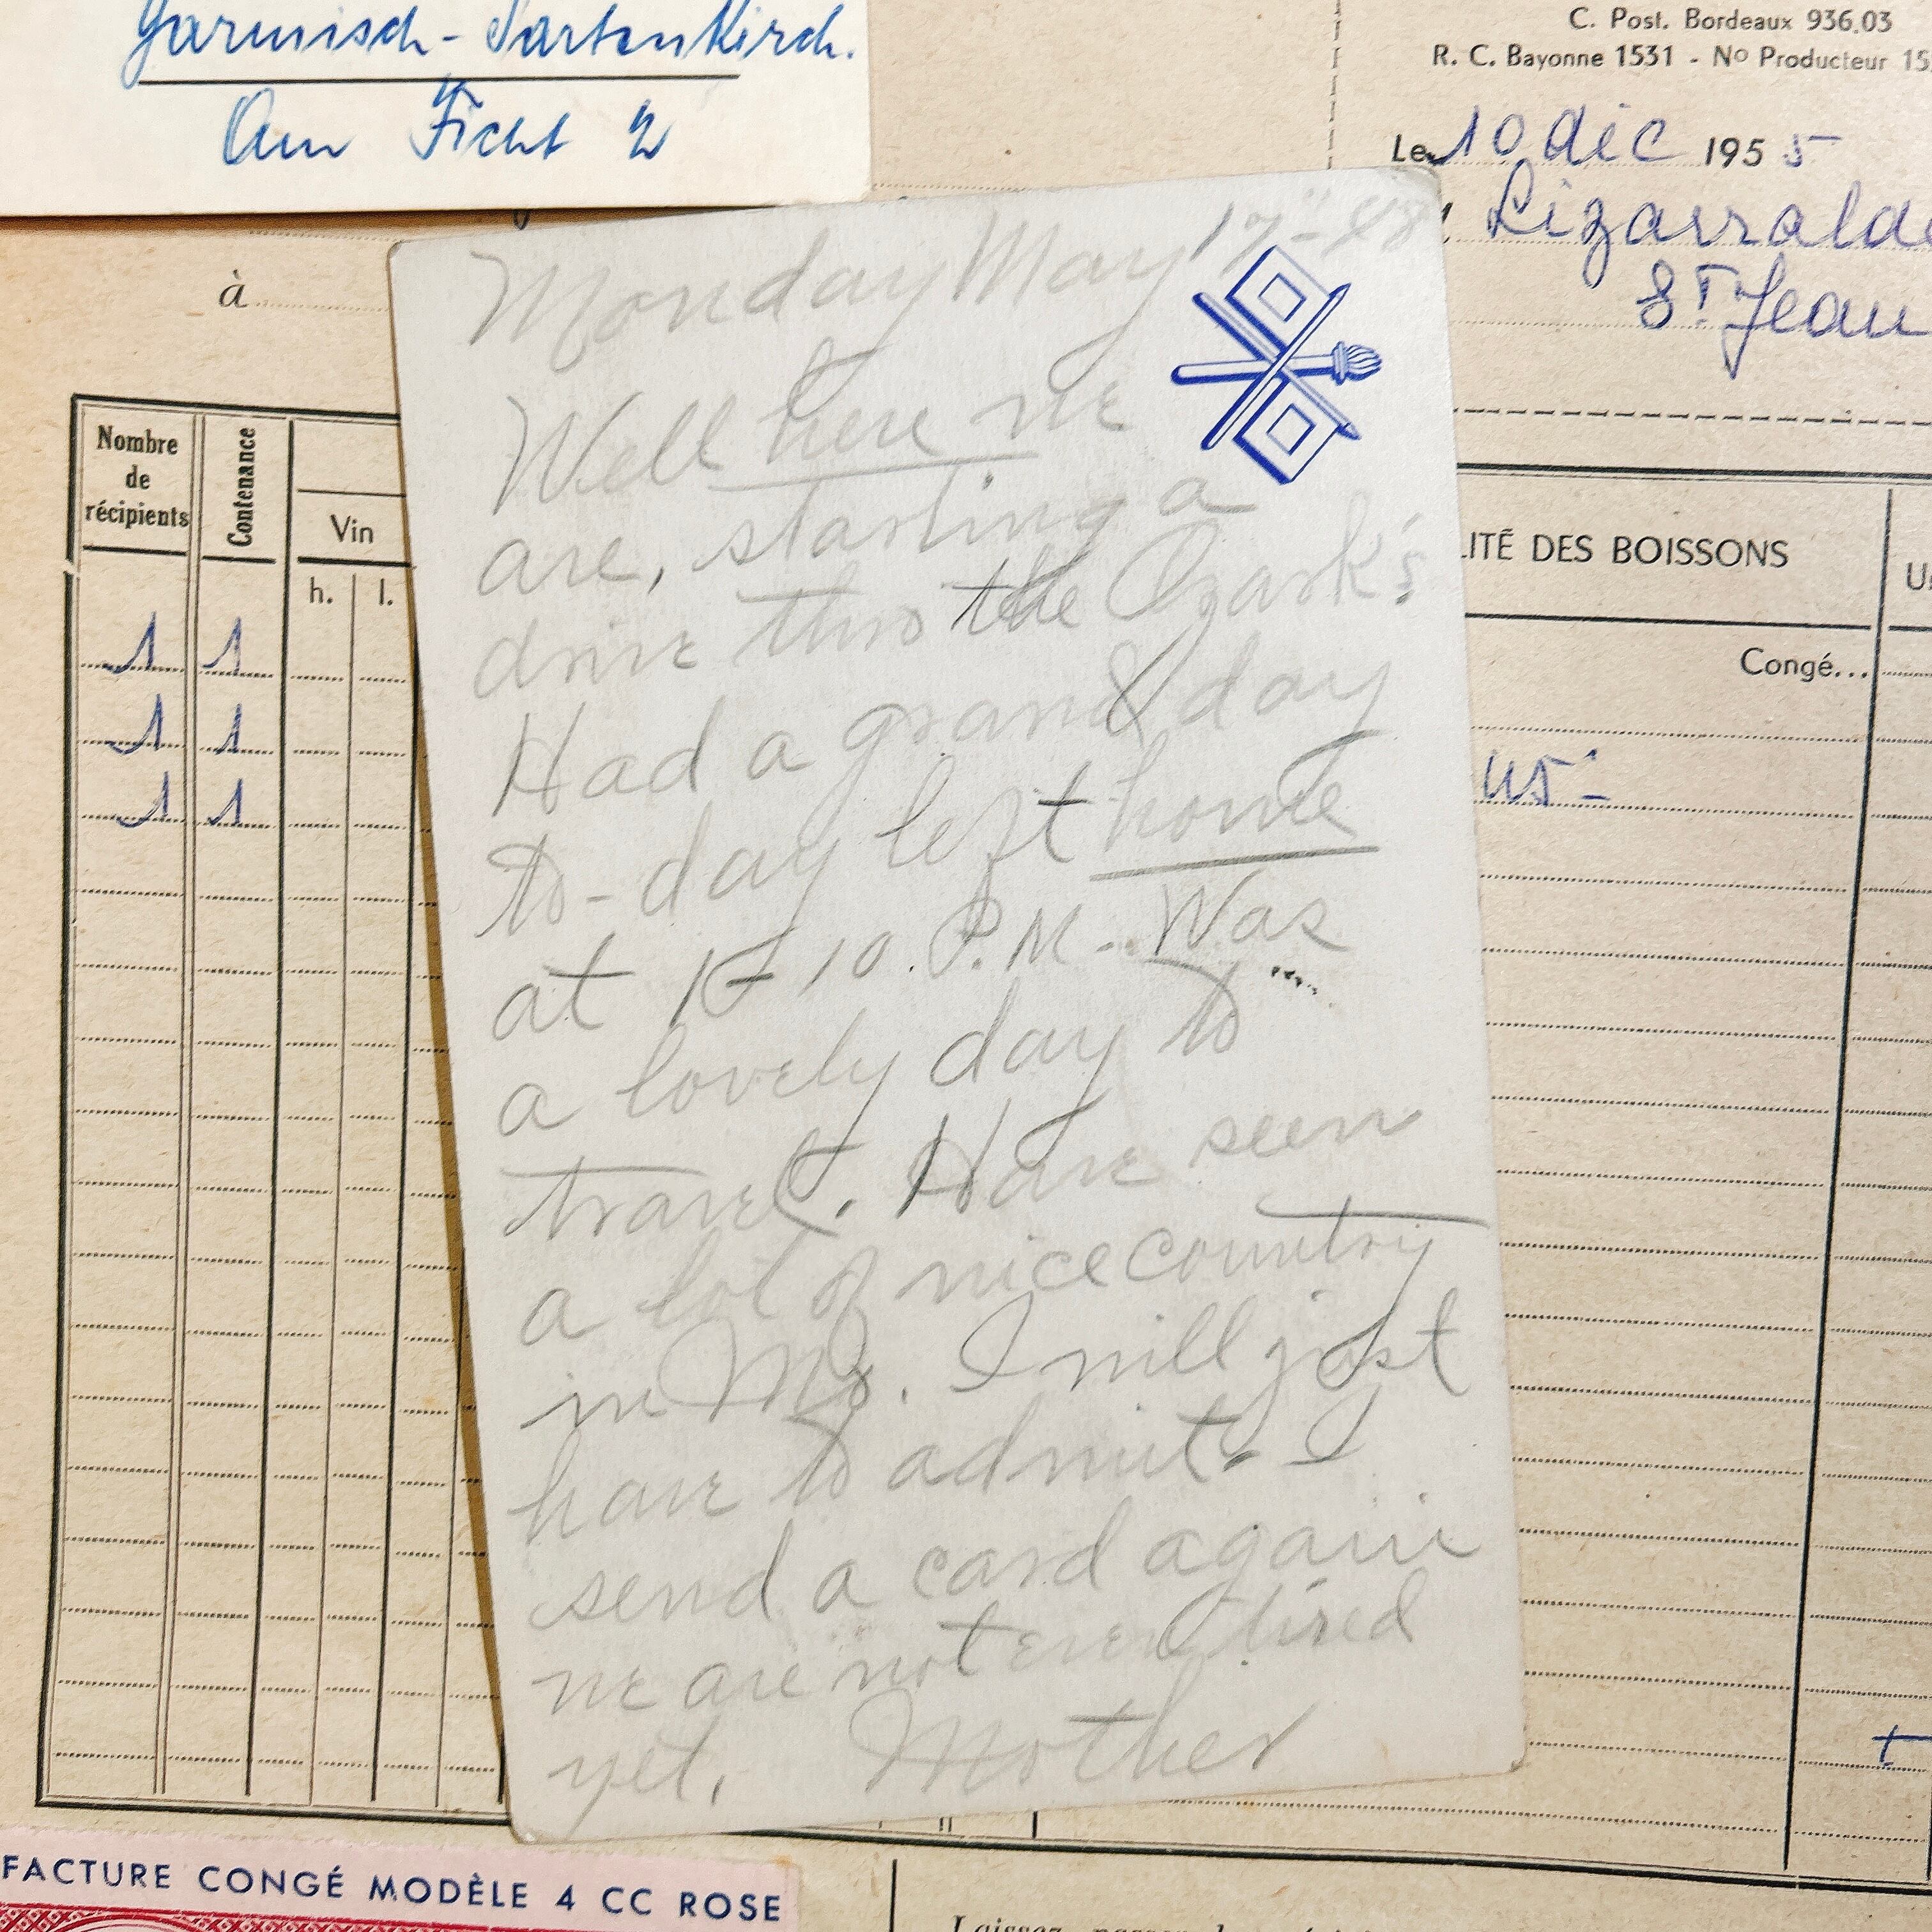 Garmisch-Partenkirch.
Am Ficht 2
C. Post. Bordeaux 936.03
R. C. Bayonne 1531 - Nº Producteur 15
Le 10 déc 1955
Lizarralde
St Jean
à
Nombre de récipients
Contenance
Vin
h. l.
1 1
1 1
1 1
LITÉ DES BOISSONS
Congé...
Monday May 17" - 48
Well here we
are, starting a
drive thro the Ozark's
Had a grand day
to-day left home
at 1-10. P.M. Was
a lovely day to
travel. Have seen
a lot of nice country
in Mo. I will just
have to admit. I
send a card again
we are not even tired
yet. Mother
FACTURE CONGÉ MODÈLE 4 CC ROSE